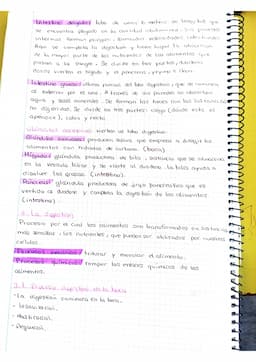 Intestino delgado: tubo de unos 6 metros de longitud que
se encuentra plegado en la cavidad abdominal. Sus paredes
internas forman pliegues, llamados vellosidades intestinales.
Aquí se completa la digestión y tiene lugar la absorción
de la mayor parte de los nutrientes de los alimentos que
pasan a la sangre. Se divide en tres partes; duodeno
donde vierten el hígado y el páncreas, yeyuno e íleon
Intestino grueso: última porción del tubo digestivo, que se comunica
al exterior por el ano. A través de sus paredes se absorben
agua y sales minerales. Se forman las heces con las sustancias
no digeridas. Se divide en tres partes: ciego (donde está el
apéndice), colon y recto.
Glándulas anexas vierten al tubo digestivo.
Glándulas salivales: producen saliva que empieza a digerir los
alimentos con hidratos de carbono. (boca)
Hígado: glándula productora de bilis, sustancia que se almacena
en la vesícula biliar y se vierte al duodeno. La bilis ayuda a
disolver las grasas. (intestino).
Páncreas: glándula productora de jugo pancreático que es
vertido al duodeno y completa la digestión de los alimentos
(intestino).
3. La digestión
Proceso por el cual los alimentos son transformados en sustancias
más sencillas, los nutrientes, que pueden ser utilizados por nuestras
células.
Procesos mecánicos: triturar y mezclar el alimento.
Procesos químicos: romper los enlaces químicos de los
alimentos.
3.1. Proceso digestivo en la boca
- La digestión comienza en la boca.
- Insalivación.
- Masticación.
- Deglución.